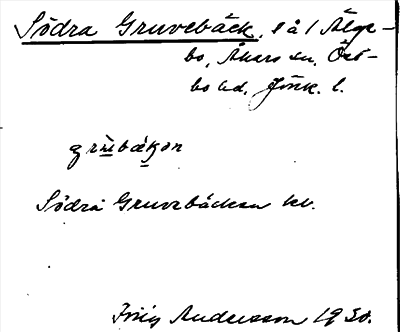 Södra Gruvebäck, l å i Älge-
bo, Åkers sn, Öst-
bo hd, Jönk. l.
gru̱bäkən
Södra Gruvebäcken kv.
Andersson 1930.